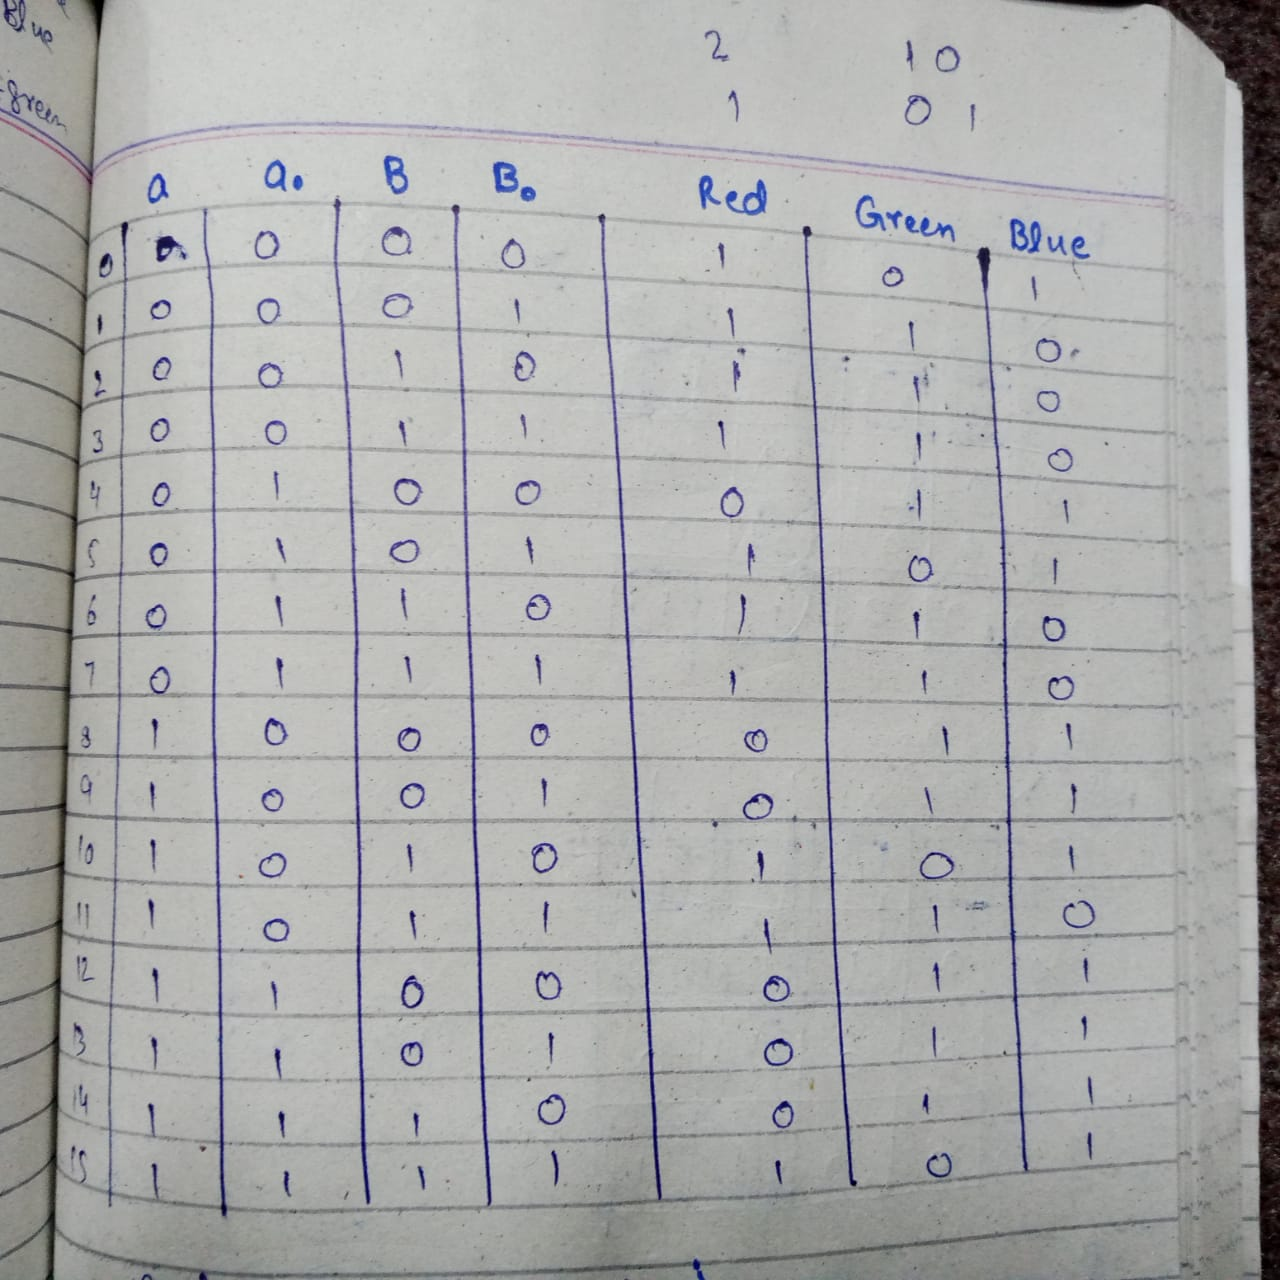 Blue
green
2 10
1 0 1
a a. B B. Red Green Blue
0 0 0 0 0 1 0 1
1 0 0 0 1 1 1 0
2 0 0 1 0 1 1 0
3 0 0 1 1 1 1 0
4 0 1 0 0 0 1 1
5 0 1 0 1 1 0 1
6 0 1 1 0 1 1 0
7 0 1 1 1 1 1 0
8 1 0 0 0 0 1 1
9 1 0 0 1 0 1 1
10 1 0 1 0 1 0 1
11 1 0 1 1 1 1 0
12 1 1 0 0 0 1 1
13 1 1 0 1 0 1 1
14 1 1 1 0 0 1 1
15 1 1 1 1 1 0 1